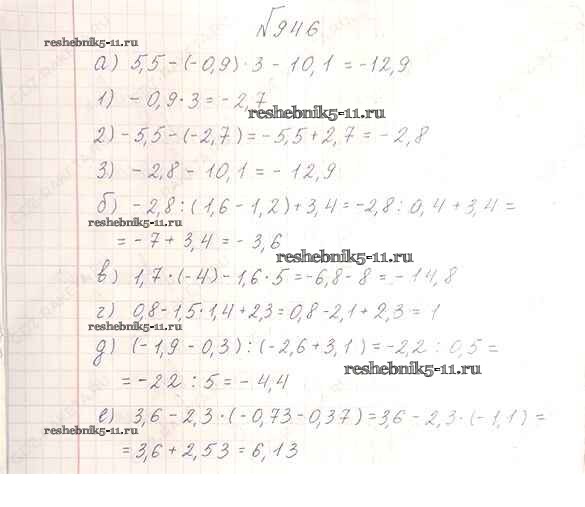 №946
reshebnik5-11.ru
а) 5,5-(-0,9)·3-10,1=-12,9
1) -0,9·3=-2,7
reshebnik5-11.ru
2) -5,5-(-2,7)=-5,5+2,7=-2,8
3) -2,8-10,1=-12,9
б) -2,8:(1,6-1,2)+3,4=-2,8:0,4+3,4=
reshebnik5-11.ru
=-7+3,4=-3,6
reshebnik5-11.ru
в) 1,7·(-4)-1,6·5=-6,8-8=-14,8
г) 0,8-1,5·1,4+2,3=0,8-2,1+2,3=1
reshebnik5-11.ru
д) (-1,9-0,3):(-2,6+3,1)=-2,2:0,5=
reshebnik5-11.ru
=-22:5=-4,4
е) 3,6-2,3·(-0,73-0,37)=3,6-2,3·(-1,1)=
reshebnik5-11.ru
=3,6+2,53=6,13